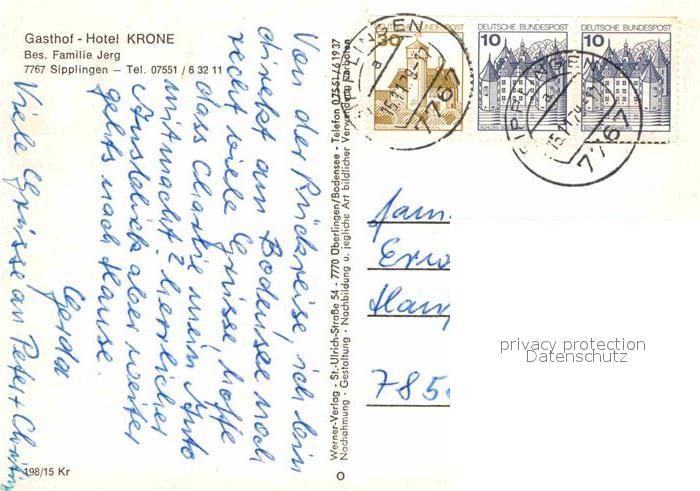 Gasthof - Hotel KRONE
Bes. Familie Jerg
7767 Sipplingen — Tel. 07551 / 6 32 11
Von der Rückreise, ich bin
direkt am Bodensee noch
recht viele Grüsse, hoffe
dass Charlie mein Auto
mitmacht? herrlicher
Ausblick aber weiter
gehts nach Hause.
Gerda
Viele Grüsse an Peter + Christin
198/15 Kr
Werner-Verlag - St.-Ulrich-Straße 54 - 7770 Überlingen/Bodensee - Telefon 07551/61937
Nachahmung - Gestaltung - Nachbildung u. jegliche Art bildlicher Verwendung verboten
30
DEUTSCHE BUNDESPOST
10
DEUTSCHE BUNDESPOST
10
DEUTSCHE BUNDESPOST
SIPPLINGEN
a
15.11.79
7767
SIPPLINGEN
a
15.11.79
7767
Fam.
785
privacy protection
Datenschutz